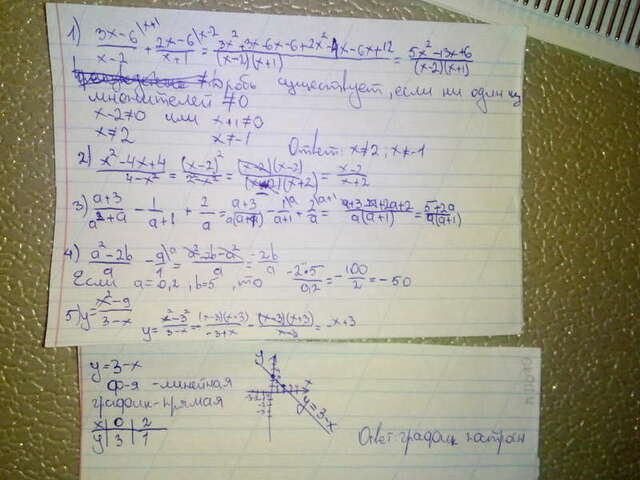 1) (3x-6)/(x-2) \x+1 + (2x-6)/(x+1) \x-2 = (3x²+3x-6x-6+2x²-4x-6x+12)/((x-2)(x+1)) = (5x²-13x+6)/((x-2)(x+1))
Дробь существует, если ни один из
множителей ≠0
x-2≠0 или x+1≠0
x≠2 x≠-1
Ответ: x≠2; x≠-1
2) (x²-4x+4)/(4-x²) = (x-2)²/(2²-x²) = ((x-2)(x-2))/((x-2)(x+2)) = (x-2)/(x+2)
3) (a+3)/(a²+a) - 1/(a+1) + 2/a = (a+3)/(a(a+1)) - 1\a/(a+1) + 2\a+1/a = (a+3-a+2a+2)/(a(a+1)) = (5+2a)/(a(a+1))
4) (a²-2b)/a - a\a/1 = (a²-2b-a²)/a = -2b/a
Если a=0,2, b=5, то (-2·5)/0,2 = -100/2 = -50
5) y = (x²-9)/(3-x) y = (x²-3²)/(3-x) = ((x-3)(x+3))/(-3+x) = ((x-3)(x+3))/(x-3) = -x+3
y=3-x
ф-я - линейная
график-прямая
x | 0 | 2
y | 3 | 1
y
x
y=3-x
Ответ: график